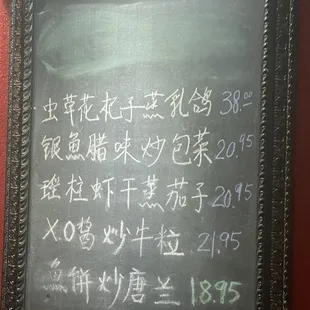 虫草花杞子蒸乳鸽 38.00
银魚腊味炒包菜 20.95
瑶柱虾干蒸茄子 20.95
X.O酱炒牛粒 21.95
魚餅炒唐兰 18.95